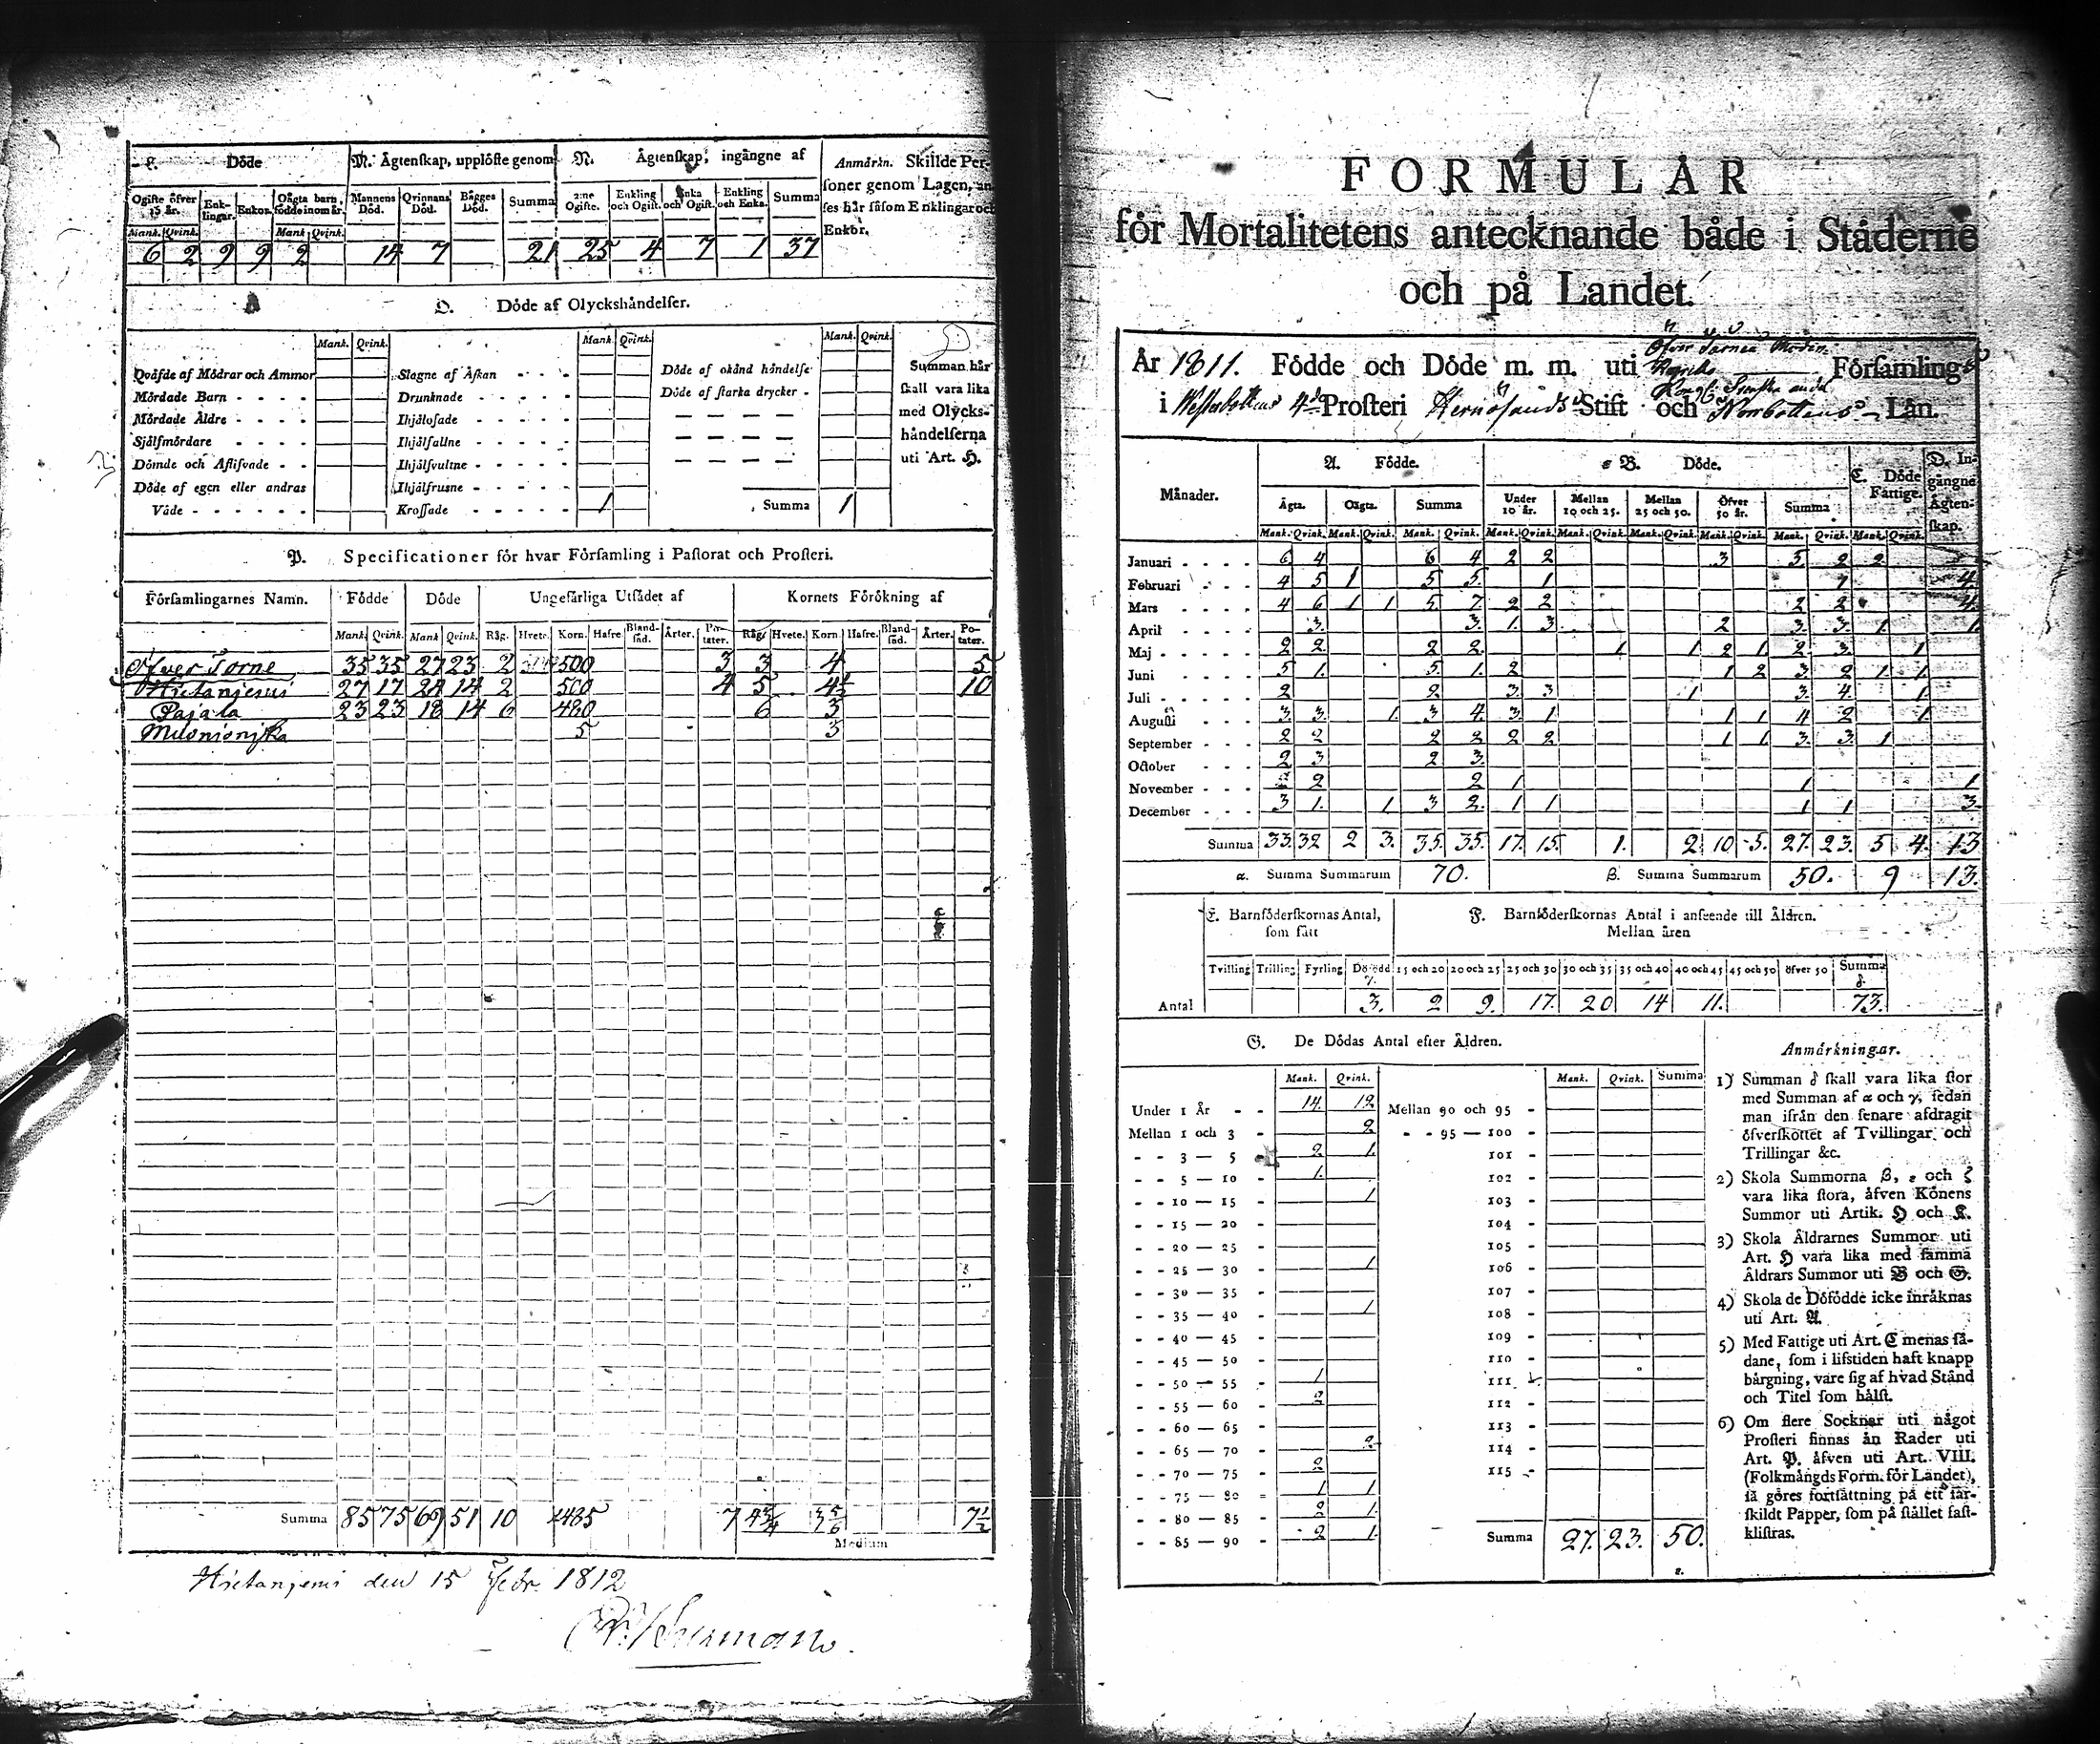 L. Döde
Ogifte öfver 15 år. Enklingar. Enkor. Oägta barn, födde inom år.
Mank. Qvink. Mank. Qvink.
6 2 9 9 2
M. Ägtenskap, upplöste genom
Mannens Död. Qvinnans Död. Bägges Död. Summa
14 7 21
N. Ägtenskap, ingångne af
2:ne Ogifte. Enkling och Ogift. Enka och Ogift. Enkling och Enka. Summa
25 4 7 1 37
Anmärkn. Skillde Per-
soner genom Lagen, an
ses här såsom Enklingar och
Enkor.
O. Döde af Olyckshändelser.
Mank. Qvink. Mank. Qvink. Mank. Qvink.
Qväfde af Mödrar och Ammor
Mördade Barn
Mördade Äldre
Sjelfmördare
Dömde och Aflifvade
Döde af egen eller andras
Våde
Slagne af Åskan
Drunknade
Ihjälosade
Ihjälfallne
Ihjälsvultne
Ihjälfrusne
Krossade 1
Döde af okänd händelse
Döde af starka drycker
Summa 1
Summan här
skall vara lika
med Olycks-
händelserna
uti Art. H.
P. Specificationer för hvar Församling i Pastorat och Prosteri.
Församlingarnes Namn. Födde Döde Ungefärliga Utsädet af Kornets Förökning af
Mank. Qvink. Mank. Qvink. Råg. Hvete. Korn. Hafre. Blandsäd. Ärter. Potater. Råg. Hvete. Korn. Hafre. Blandsäd. Ärter. Potater.
Öfver Torne 35 35 27 23 2 500 3 3 4 5
Hietaniemi 27 17 24 14 2 500 4 5 4½ 10
Pajala 23 23 18 14 6 480 6 3
Muonioniska 5 3
Summa 85 75 69 51 10 1485 7 4¾ 3⅚ 7½
Medium
Hietaniemi den 15 Febr. 1812
FORMULÄR
för Mortalitetens antecknande både i Städerne
och på Landet.
År 1811. Födde och Döde m. m. uti Öfver Torneå Moder Församling
i Westerbottens 4de Prosteri Hernösands Stift och Norbottens Län.
Månader. A. Födde. B. Döde. C. Döde Fattige. D. Ingångne Ägtenskap.
Ägta. Oägta. Summa Under 10 år. Mellan 10 och 25. Mellan 25 och 50. Öfver 50 år. Summa
Mank. Qvink. Mank. Qvink. Mank. Qvink. Mank. Qvink. Mank. Qvink. Mank. Qvink. Mank. Qvink. Mank. Qvink. Mank. Qvink.
Januari 6 4 6 4 2 2 3 5 2 2
Februari 4 5 1 5 5 1 1 4
Mars 4 6 1 1 5 7 2 2 2 2 4
April 3 3 1 3 2 3 3 1 1
Maj 2 2 2 2 1 1 2 1 2 3 1
Juni 5 1 5 1 2 1 2 3 2 1 1
Juli 2 2 3 3 1 3 4 1
Augusti 3 3 1 3 4 3 1 1 1 4 2 1
September 2 2 2 2 2 2 1 1 3 3 1
October 2 3 2 3
November 2 2 1 1 1
December 3 1 1 3 2 1 1 1 1 3
Summa 33 32 2 3 35 35 17 15 1 2 10 5 27 23 5 4 13
α. Summa Summarum 70. β. Summa Summarum 50. 9 13.
E. Barnföderskornas Antal, som fått
F. Barnföderskornas Antal i anseende till Åldren.
Mellan åren
Tvilling Trilling Fyrling Dödfödd γ. 15 och 20 20 och 25 25 och 30 30 och 35 35 och 40 40 och 45 45 och 50 öfver 50 Summa δ.
Antal 3. 2 9. 17. 20 14 11. 73.
G. De Dödas Antal efter Åldren.
Mank. Qvink. Mank. Qvink. Summa
Under 1 År 14 12
Mellan 1 och 3 2
3 — 5 2 1
5 — 10 1
10 — 15 1
15 — 20
20 — 25
25 — 30 1
30 — 35
35 — 40 1
40 — 45
45 — 50
50 — 55 1
55 — 60 2
60 — 65
65 — 70 2
70 — 75 2
75 — 80 1 1
80 — 85 2 1
85 — 90 2 1
Mellan 90 och 95
95 — 100
101
102
103
104
105
106
107
108
109
110
111
112
113
114
115
Summa 27. 23. 50.
ε.
Anmärkningar.
1) Summan δ skall vara lika stor
med Summan af α och γ, sedan
man ifrån den senare afdragit
öfverskottet af Tvillingar och
Trillingar &c.
2) Skola Summorna β, ε och ζ
vara lika stora, äfven Könens
Summor uti Artik. H och K.
3) Skola Åldrarnes Summor uti
Art. H vara lika med samma
Åldrars Summor uti B och G.
4) Skola de Döfödde icke inräknas
uti Art. A.
5) Med Fattige uti Art. C menas så-
dane, som i lifstiden haft knapp
bärgning, vare sig af hvad Stånd
och Titel som hälst.
6) Om flere Socknar uti något
Prosteri finnas än Rader uti
Art. P. äfven uti Art. VIII.
(Folkmängds Form. för Landet),
så göres fortsättning på ett sär-
skildt Papper, som på stället fast-
klistras.